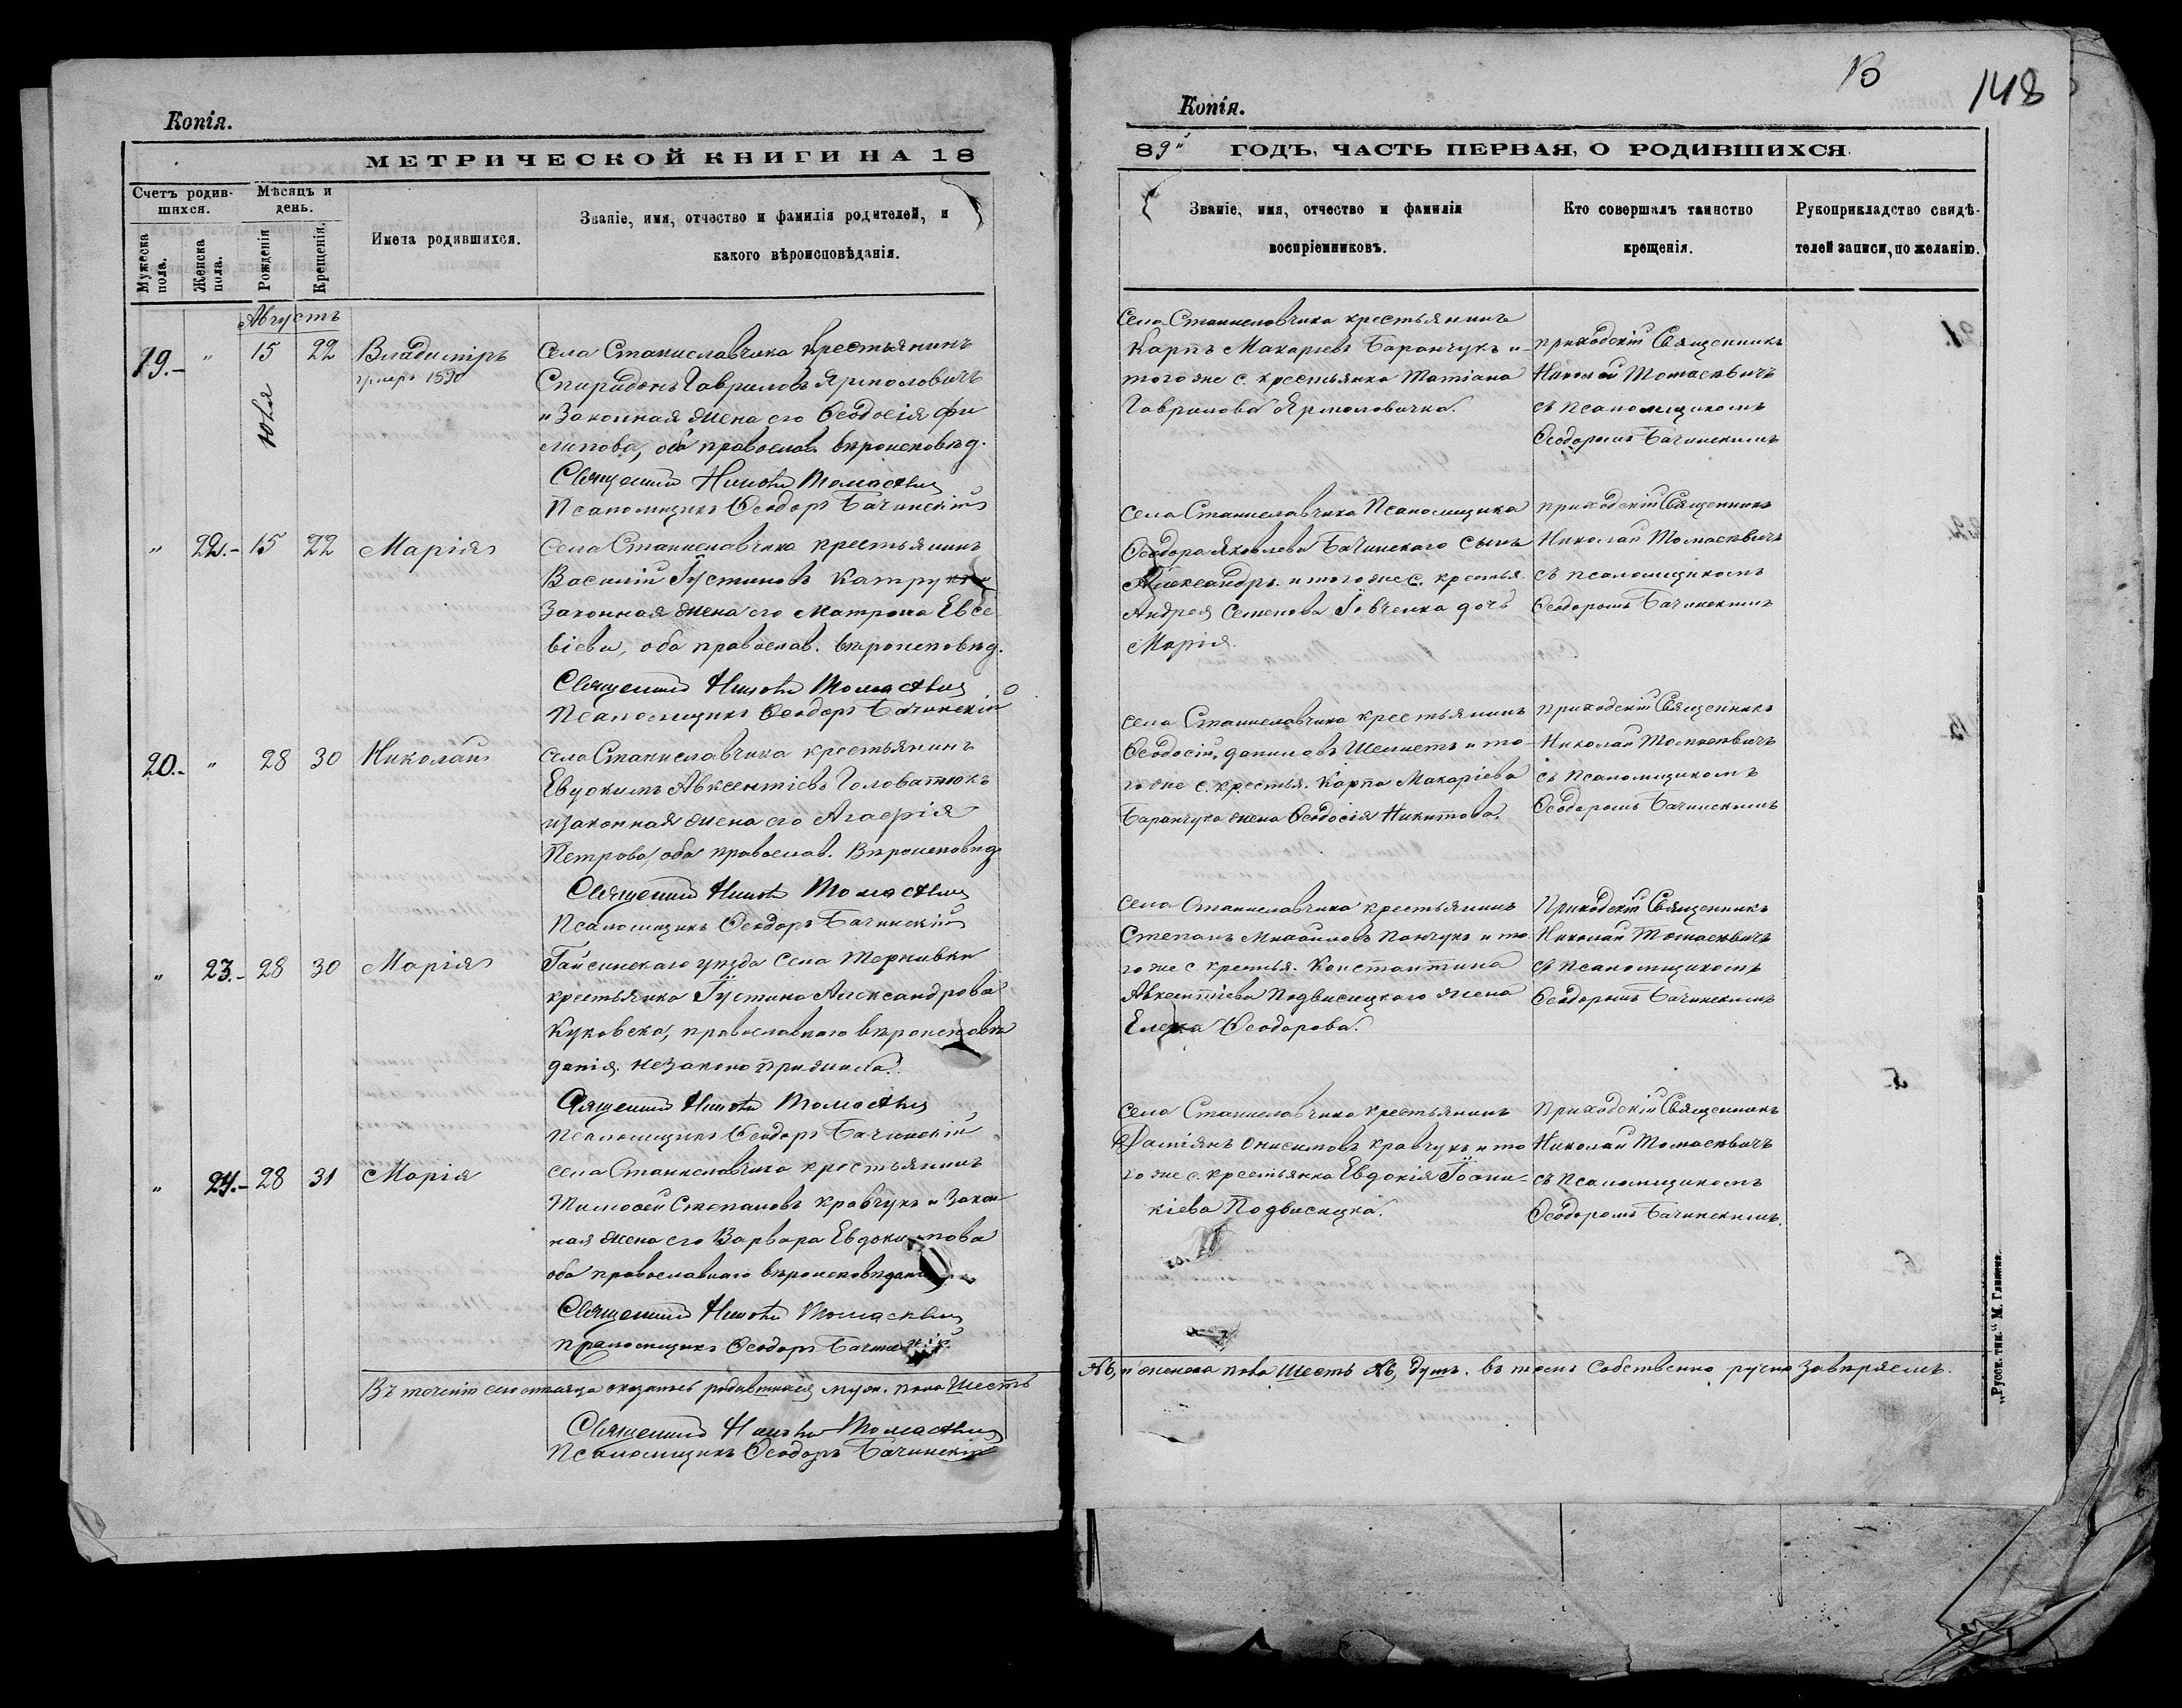 Копія.
МЕТРИЧЕСКОЙ КНИГИ НА 18
Счетъ родив-
шихся.
Мѣсяцъ и
день.
Мужеска
пола.
Женска
пола.
Рожденія
Крещенія.
Имена родившихся.
Званіе, имя, отчество и фамилія родителей, и
какого вѣроисповѣданія.
Августъ
19.- " 15 22 Владимиръ
1890
Села Станиславчика крестьянинъ
Спиридонъ Гавриловъ Ярмоловичъ
и законная жена его Ѳеодосія Фи
липова, оба православ. вѣроисповѣд.
Псаломщикъ Ѳеодоръ Бачинскій
" 22.- 15 22 Марія
Села Станиславчика крестьянинъ
Василій Іустиновъ
Законная жена его Матрона Евсе
віева, оба православ. вѣроисповѣд.
Псаломщикъ Ѳеодоръ Бачинскій
20.- " 28 30 Николай
Села Станиславчика крестьянинъ
Евдокимъ Авксентіевъ Головатюкъ
и законная жена его Агафія
Петрова, оба православ. Вѣроисповѣд
Псаломщикъ Ѳеодоръ Бачинскій
" 23.- 28 30 Марія
Гайсинскаго уѣзда Села Терновки
крестьянка Іустина Александрова
православнаго вѣроисповѣ
данія, незаконно прижила.
Псаломщикъ Ѳеодоръ Бачинскій
" 24.- 28 31 Марія
села Станиславчика крестьянинъ
Тимоѳей Степановъ Кравчукъ и Закон
ная жена его Варвара Евдокимова
оба православнаго вѣроисповѣдан
Псаломщикъ Ѳеодоръ
муж. пола Шесть
Псаломщикъ Ѳеодоръ Бачинскій
148
Копія.
89 ГОДЪ, ЧАСТЬ ПЕРВАЯ, О РОДИВШИХСЯ.
Званіе, имя, отчество и фамилія
воспріемниковъ.
Кто совершалъ таинство
крещенія.
Рукоприкладство свидѣ-
телей записи, по желанію.
Села Станиславчика крестьянинъ
Карпъ Макаріевъ Баранчукъ и
того же с. крестьянка Татіана
Гаврилова Ярмоловичка.
приходскій Священникъ
Николай Томасевичъ
съ псаломщикомъ
Ѳеодоромъ Бачинскимъ
Села Станиславчика Псаломщика
Ѳеодора Яковлева Бачинскаго сынъ
Александръ. и того же с. крестья.
Андрея Семенова Іовченка дочь
Марія.
приходскій Священникъ
Николай Томасевичъ
съ псаломщикомъ
Ѳеодоромъ Бачинскимъ
села Станиславчика крестьянинъ
Ѳеодосій Даниловъ и то
го же с. крестья. Карпа Макаріева
Баранчука жена Ѳеодосія Никитова.
приходскій Священникъ
Николай Томасевичъ
съ Псаломщикомъ
Ѳеодоромъ Бачинскимъ
села Станиславчика крестьянинъ
Степанъ Михайловъ Панчукъ и то
го же с. крестья. Константина
Авксентіева Подвисицкаго жена
Елена Ѳеодорова.
Приходскій Священникъ
Николай Томасевичъ
съ псаломщикомъ
Ѳеодоромъ Бачинскимъ
села Станиславчика крестьянинъ
Даміянъ Онисимовъ Кравчукъ и то
го же с. крестьянка Евдокія Іоани-
кіева Подвисицка.
Приходскій Священникъ
Николай Томасевичъ
съ Псаломщикомъ
Ѳеодоромъ Бачинскимъ.
и женска пола Шесть душъ. въ томъ Собственно ручно завѣряемъ.
„Русск. тип.“ М.